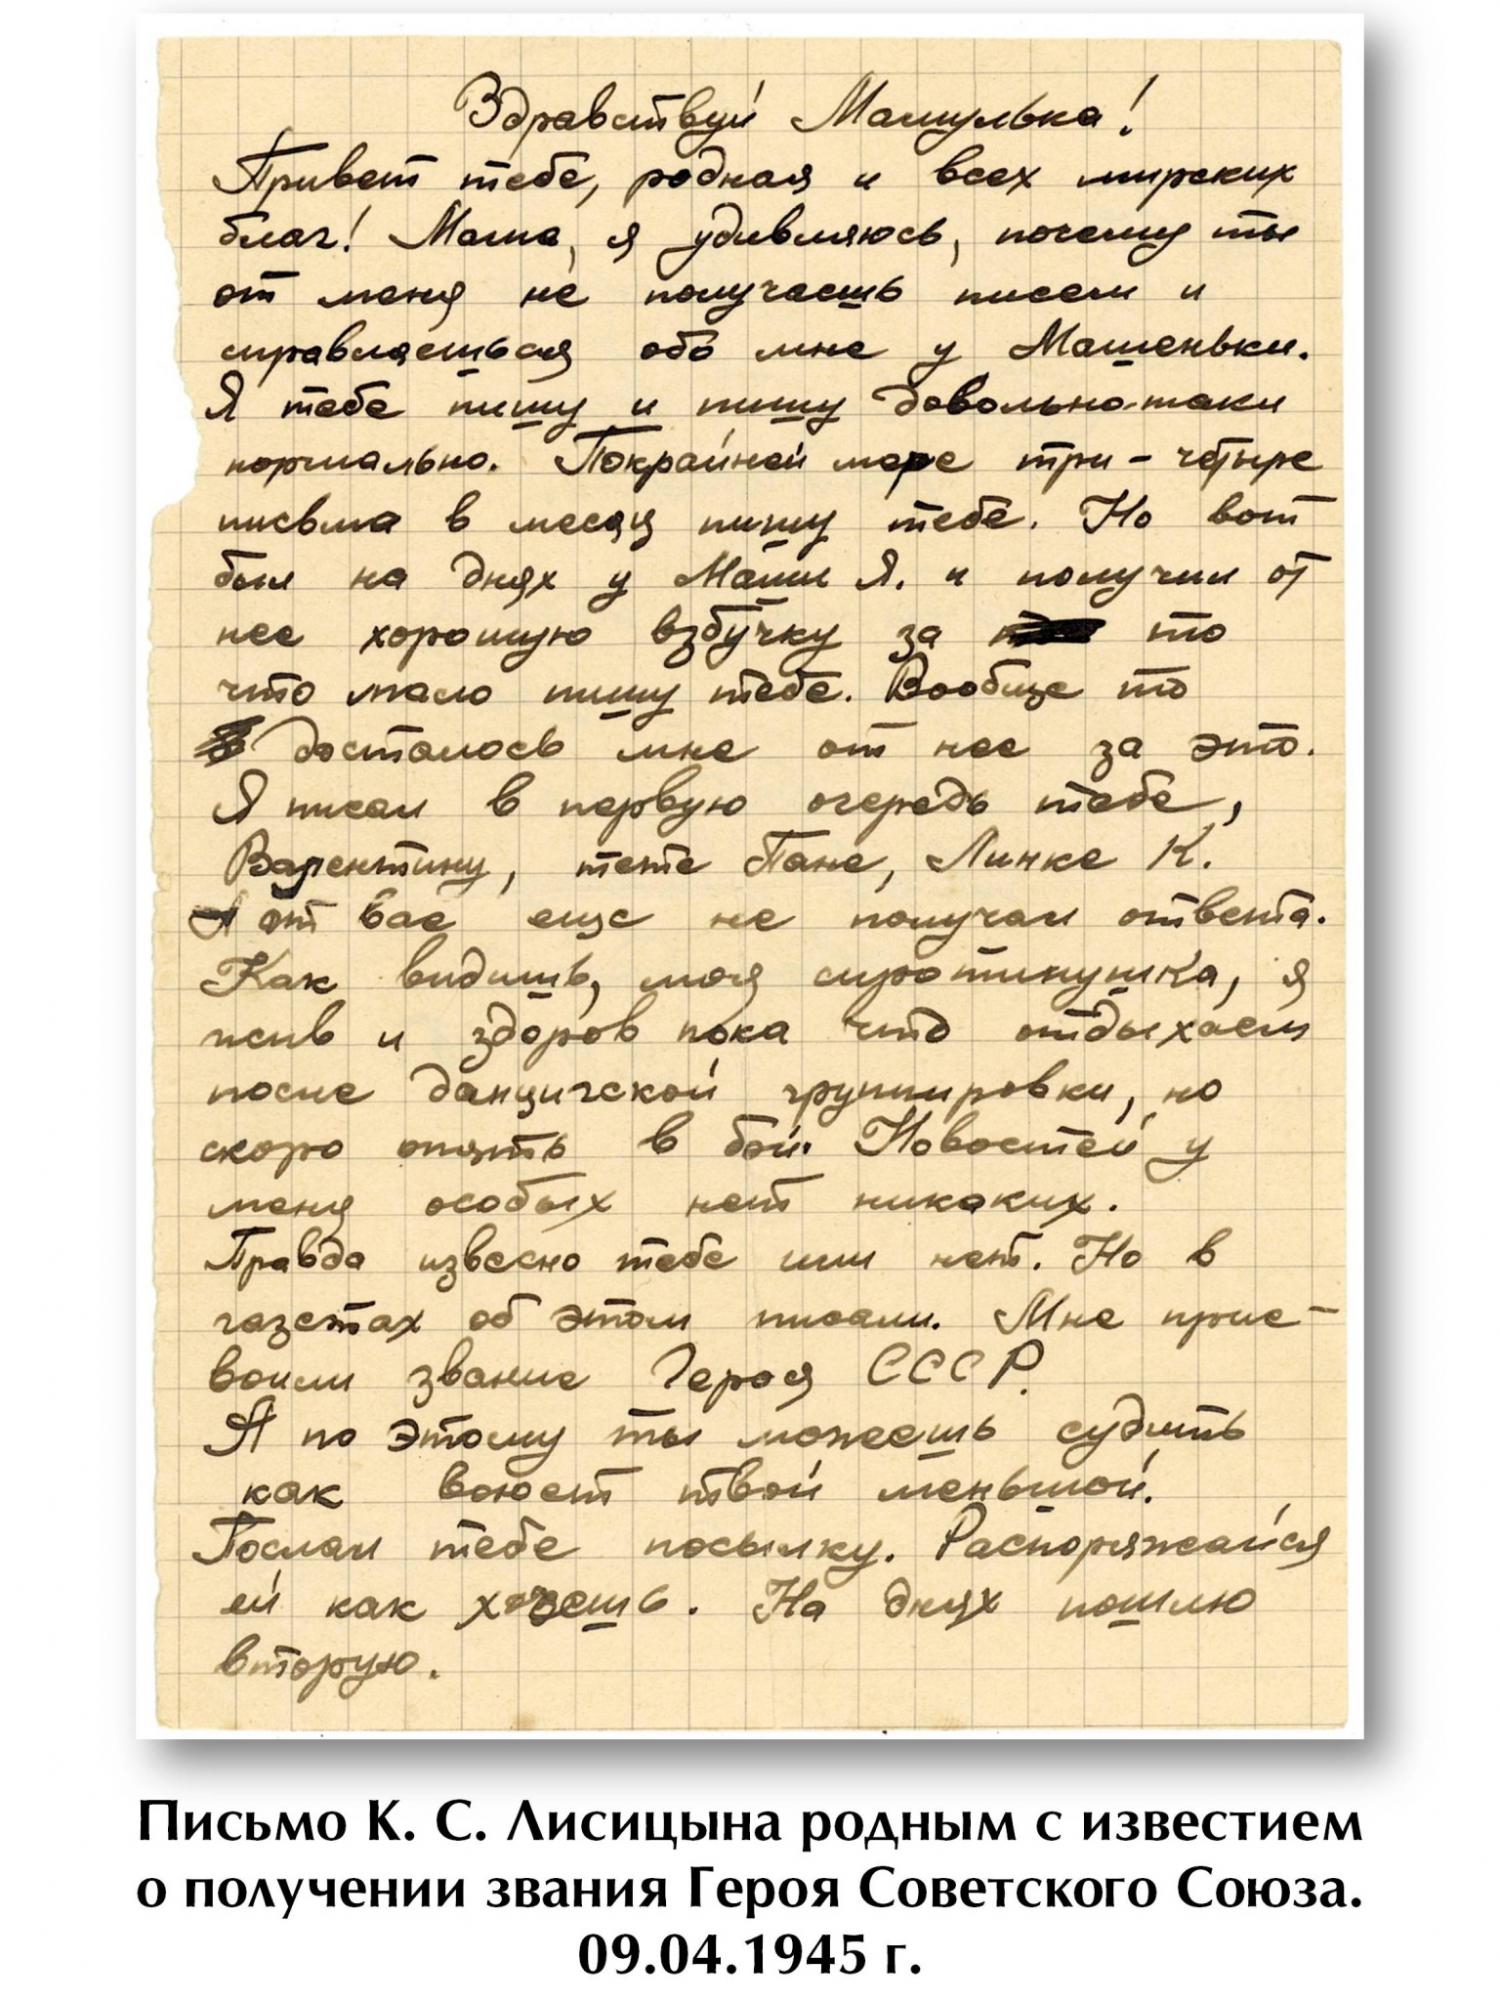 Здравствуй Машулька!
Привет тебе, родная и всех мирских
благ! Маша, я удивляюсь, почему ты
от меня не получаешь писем и
справляешься обо мне у Машеньки.
Я тебе пишу и пишу довольно-таки
нормально. Покрайней мере три-четыре
письма в месяц пишу тебе. Но вот
был на днях у Маши Я. и получил от
нее хорошую взбучку за то
что мало пишу тебе. Вообще то
досталось мне от нее за это.
Я писал в первую очередь тебе,
Валентину, тете Пане, Линке К.
А от вас еще не получал ответа.
Как видишь, моя сиротинушка, я
жив и здоров пока что отдыхаем
после данцигской группировки, но
скоро опять в бой. Новостей у
меня особых нет никаких.
Правда извесно тебе или нет. Но в
газетах об этом писали. Мне прис-
воили звание Героя СССР.
А по этому ты можешь судить
как воюет твой меньшой.
Послал тебе посылку. Распоряжайся
ей как хочешь. На днях пошлю
вторую.
Письмо К. С. Лисицына родным с известием
о получении звания Героя Советского Союза.
09.04.1945 г.